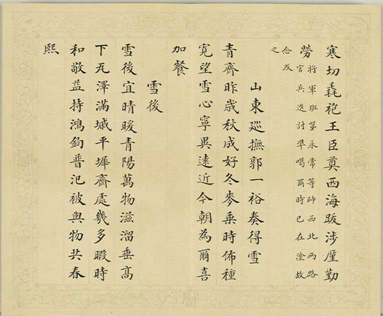 寒切毳袍王臣奠西海跋涉廑勤
勞將軍班第永常等師西北兩路
官兵進討準噶爾時已在途故
念及
之
山東巡撫郭一裕奏得雪
青齊昨歲秋成好冬麥乘時佈種
寬望雪心寧異遠近今朝為爾喜
加餐
雪後
雪後宜晴暖青陽萬物滋溜垂高
下瓦澤滿城平墀齊處幾多暇時
和敬益持鴻鈞普氾被與物共春
熙